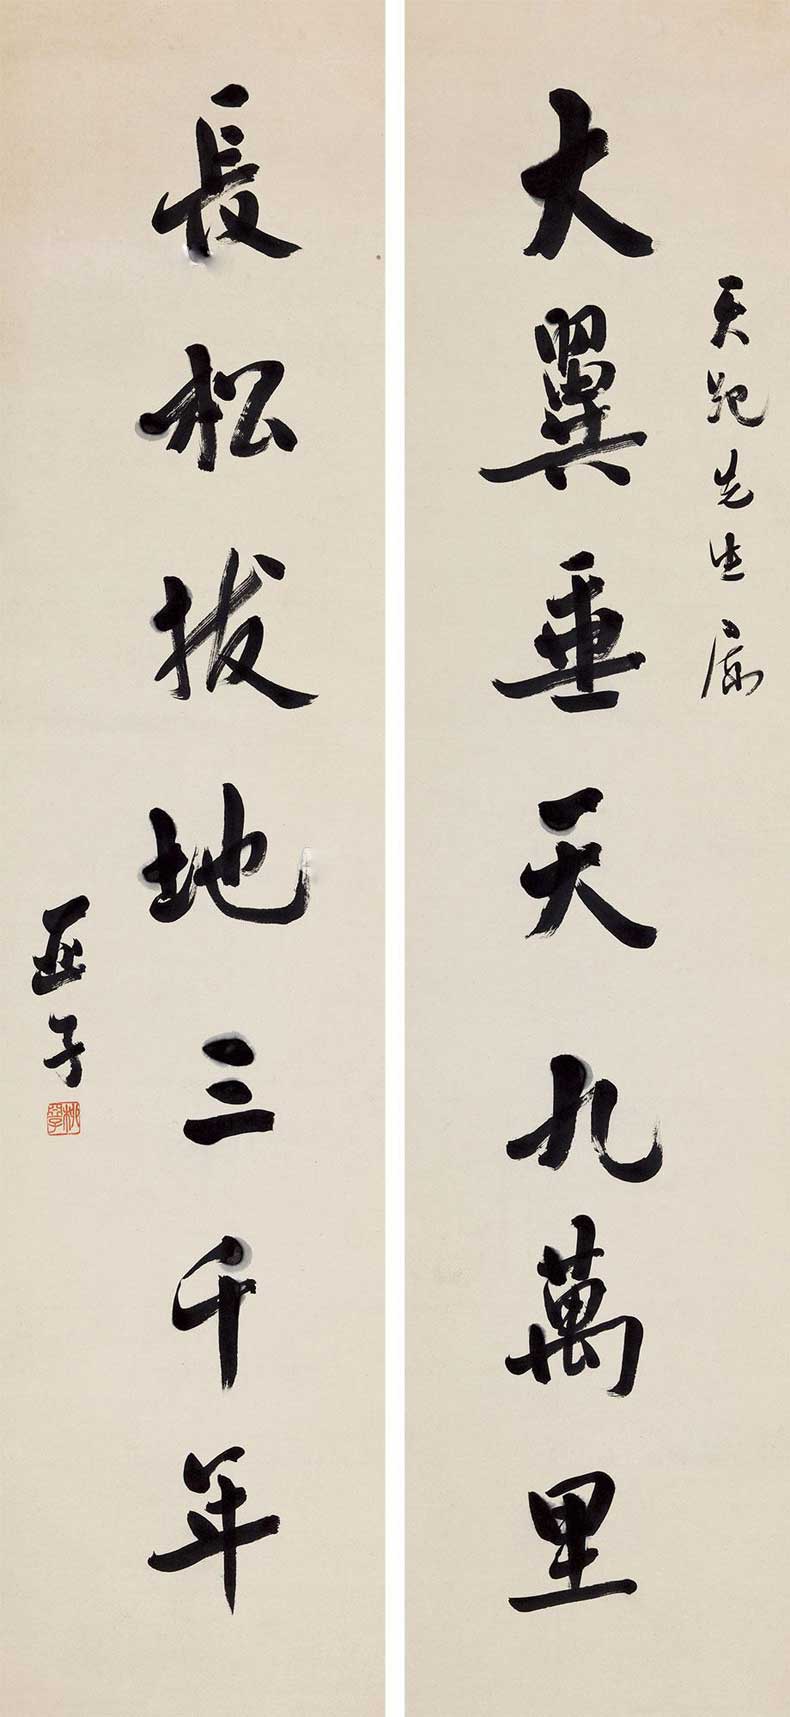 天先生屬
大翼垂天九萬里
長松拔地三千年
亞子